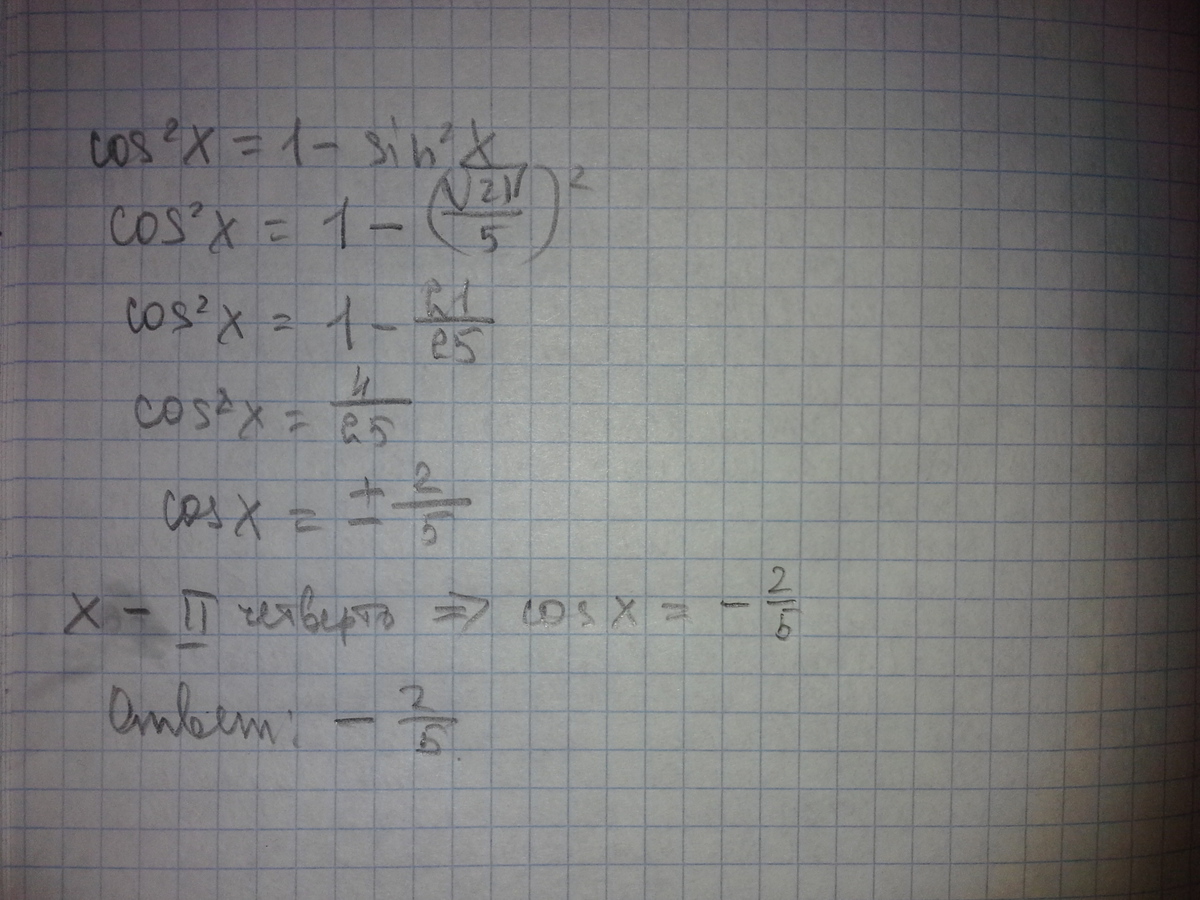 cos²x = 1 - sin²x
cos²x = 1 - (√21/5)²
cos²x = 1 - 21/25
cos²x = 4/25
cos x = ± 2/5
x - II четверть => cos x = - 2/5
Ответ: - 2/5